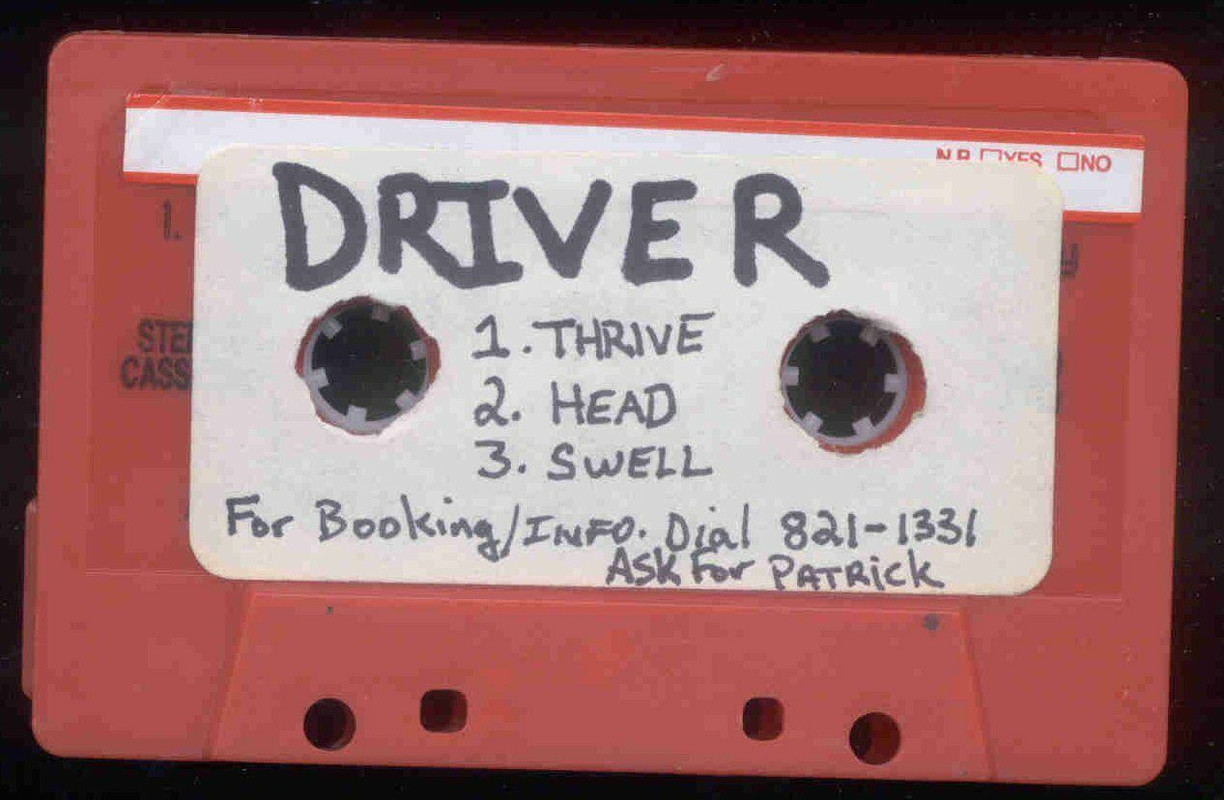 N.R. □YES □NO
DRIVER
1.
1. THRIVE
STE
CASS
2. HEAD
3. SWELL
For Booking/INFO. Dial 821-1331
Ask For PATRICK